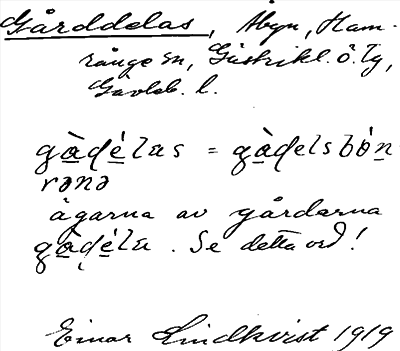 Gårddelas, Åbyn, Ham-
rånge sn, Gästrikl. ö. Tg,
Gävleb. l.
gàdélas = gàdelsbón
rənə
ägarna av gårdarna
gàdéla. Se detta ord!
Einar Lindkvist 1919